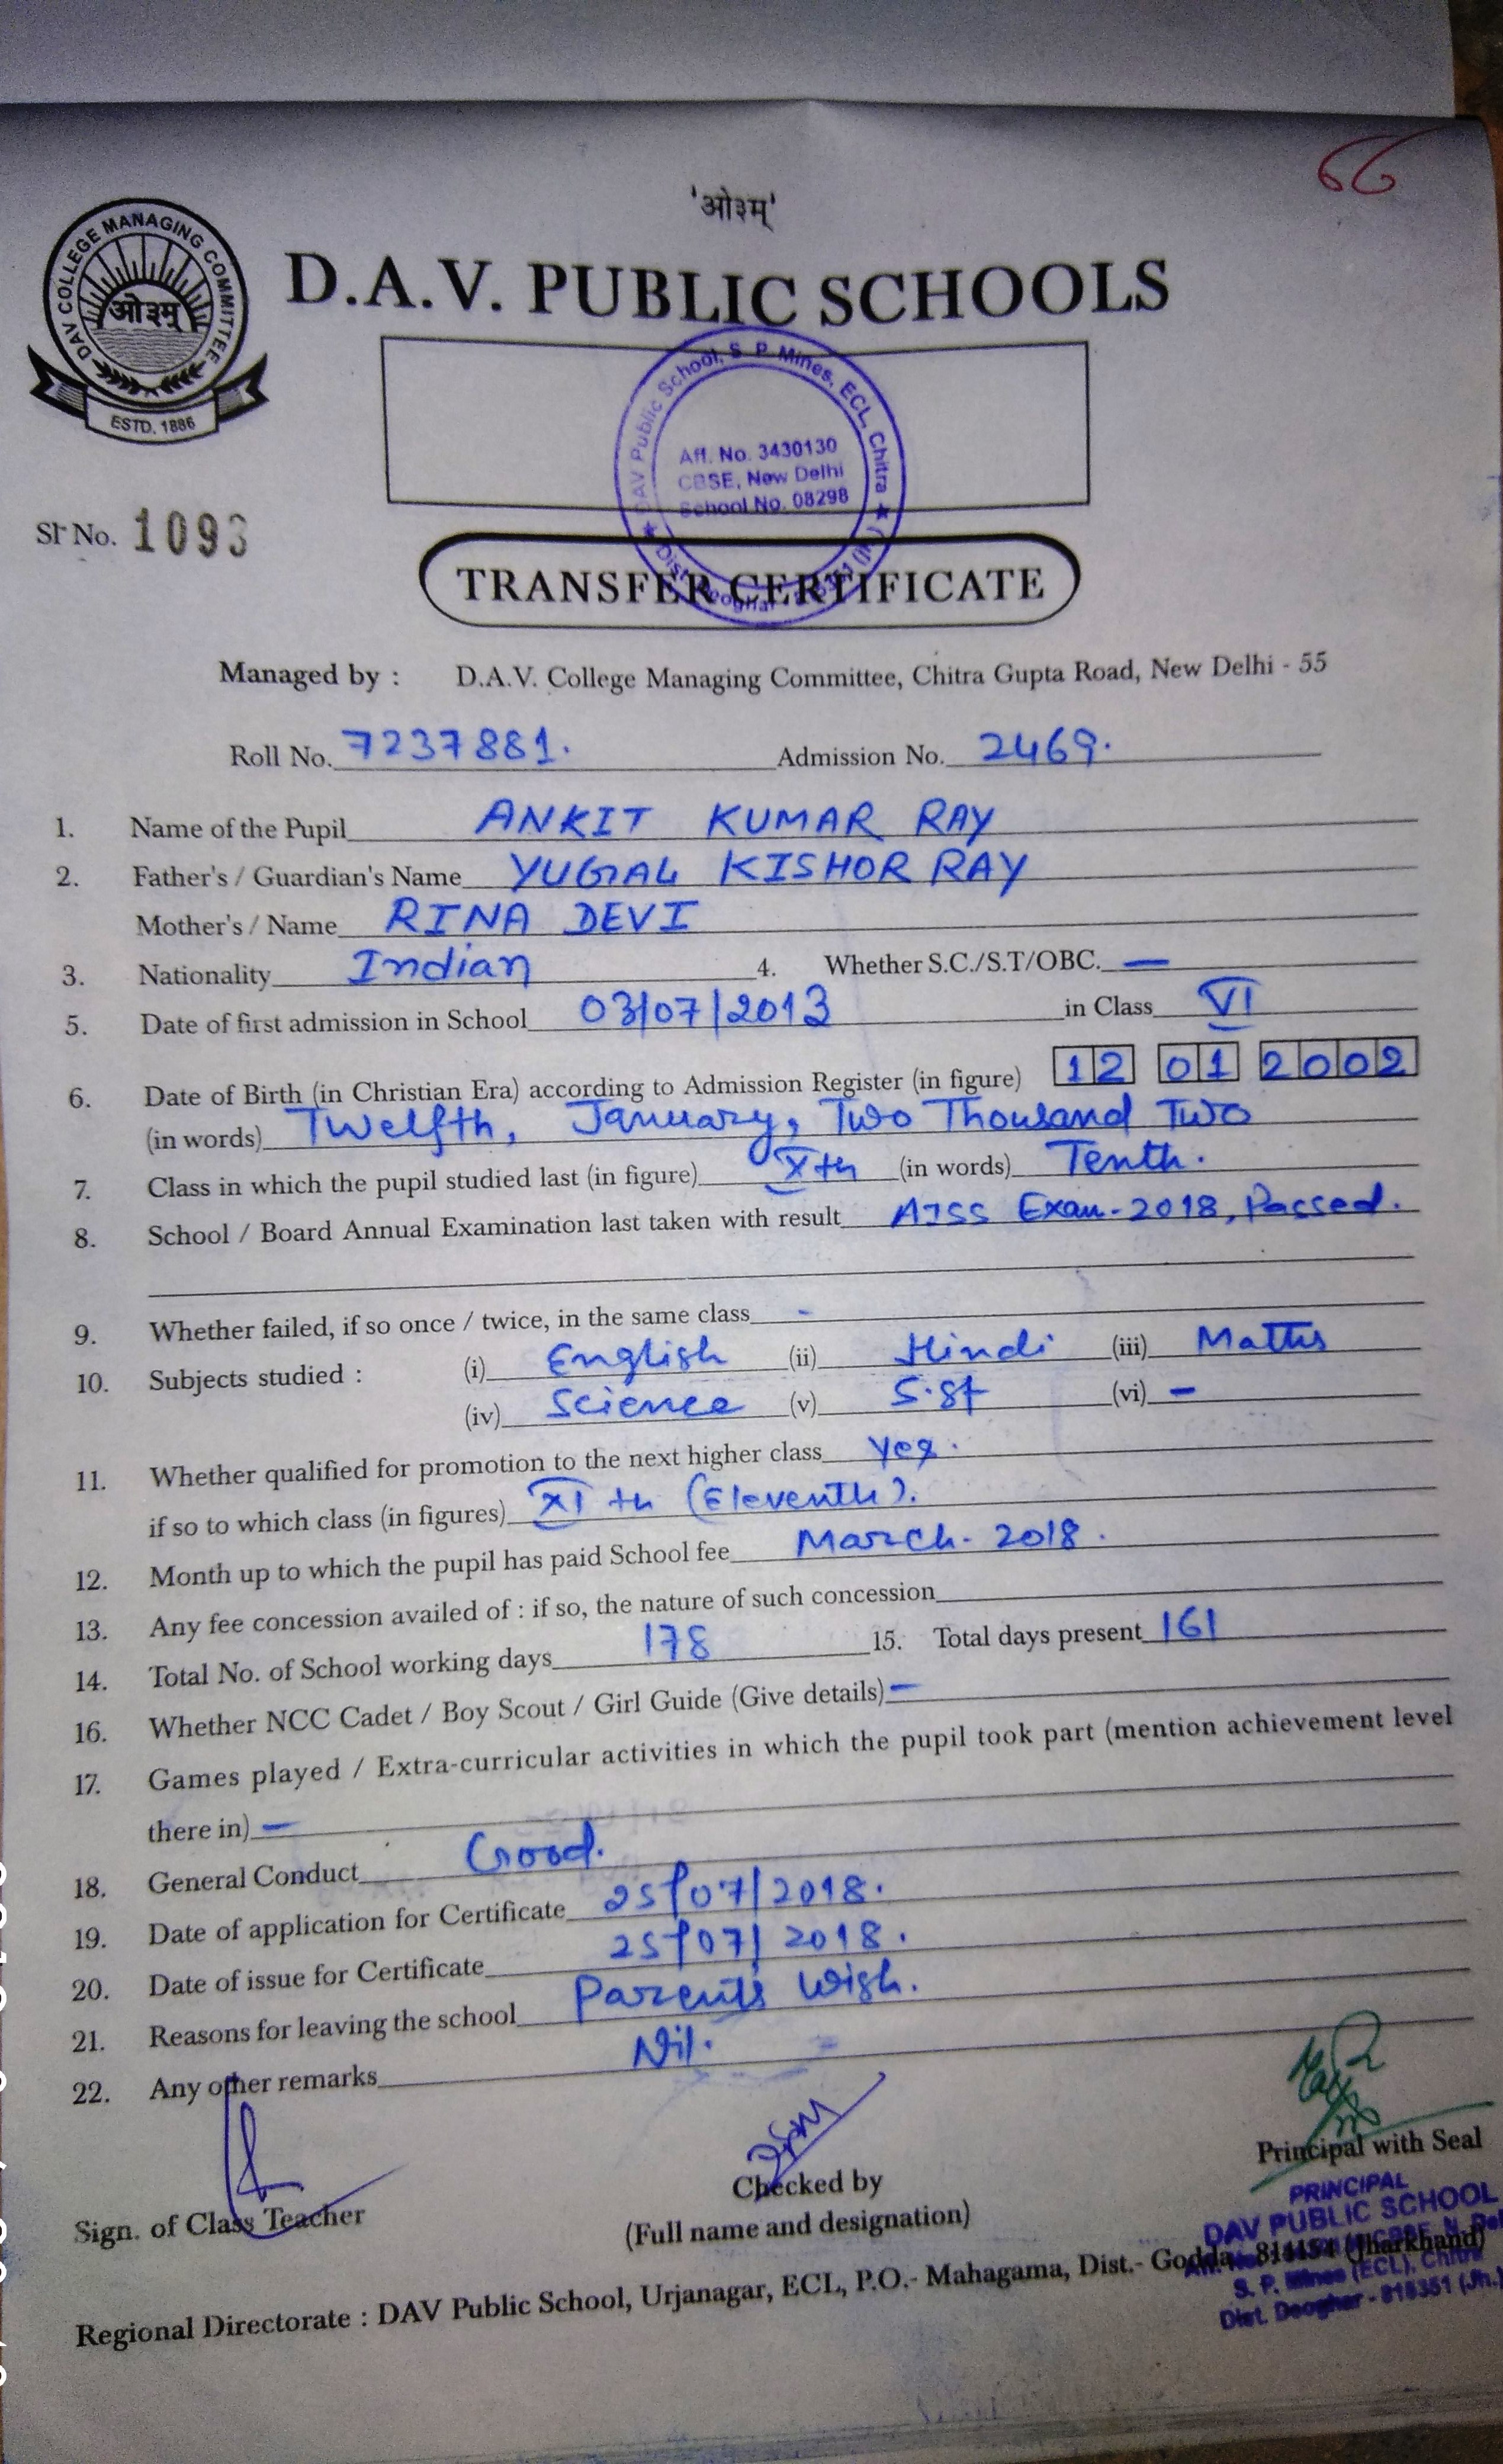 66
'ओ३म्'
DAV COLLEGE MANAGING COMMITTEE
ओ३म्
ESTD. 1886
D.A.V. PUBLIC SCHOOLS
DAV Public School, S. P. Mines, ECL, Chitra
Aff. No. 3430130
CBSE, New Delhi
School No. 08298
Sl No. 1093
TRANSFER CERTIFICATE
Managed by : D.A.V. College Managing Committee, Chitra Gupta Road, New Delhi - 55
Roll No. 7237881. Admission No. 2469.
1. Name of the Pupil ANKIT KUMAR RAY
2. Father's / Guardian's Name YUGAL KISHOR RAY
Mother's / Name RINA DEVI
3. Nationality Indian 4. Whether S.C./S.T/OBC. —
5. Date of first admission in School 03/07/2013 in Class VI
6. Date of Birth (in Christian Era) according to Admission Register (in figure) 12 01 2002
(in words) Twelfth, January, Two Thousand Two
7. Class in which the pupil studied last (in figure) Xth (in words) Tenth.
8. School / Board Annual Examination last taken with result AISS Exam-2018, Passed.
9. Whether failed, if so once / twice, in the same class -
10. Subjects studied : (i) English (ii) Hindi (iii) Maths
(iv) Science (v) S.St (vi) -
11. Whether qualified for promotion to the next higher class yes.
if so to which class (in figures) XI th (Eleventh).
12. Month up to which the pupil has paid School fee March- 2018.
13. Any fee concession availed of : if so, the nature of such concession
14. Total No. of School working days 178 15. Total days present 161
16. Whether NCC Cadet / Boy Scout / Girl Guide (Give details) —
17. Games played / Extra-curricular activities in which the pupil took part (mention achievement level
there in) —
18. General Conduct Good.
19. Date of application for Certificate 25/07/2018.
20. Date of issue for Certificate 25/07/2018.
21. Reasons for leaving the school Parents Wish.
22. Any other remarks Nil.
Sign. of Class Teacher
Checked by
(Full name and designation)
Principal with Seal
PRINCIPAL
DAV PUBLIC SCHOOL
S. P. Mines (ECL), Chitra
Dist. Deoghar - 815351 (Jh.)
Regional Directorate : DAV Public School, Urjanagar, ECL, P.O.- Mahagama, Dist.- Godda, 814154 (Jharkhand)